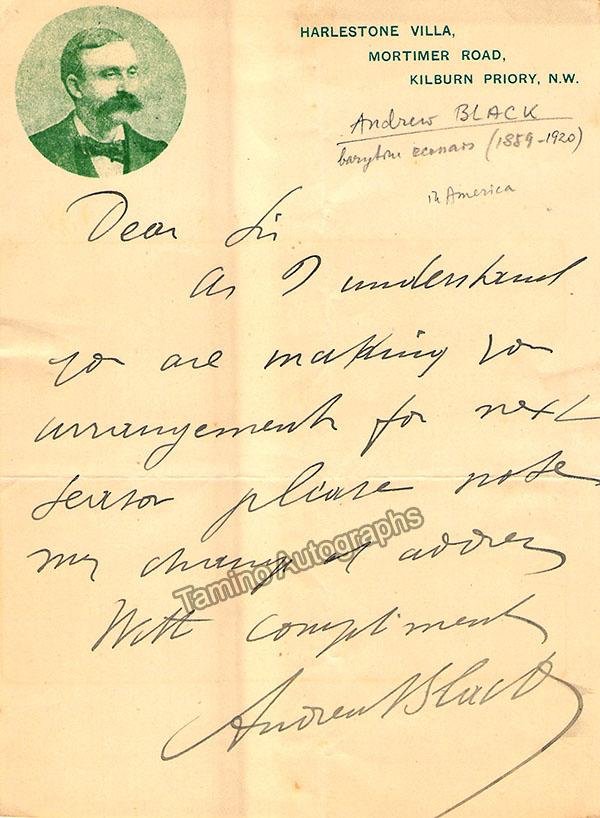 HARLESTONE VILLA,
MORTIMER ROAD,
KILBURN PRIORY, N.W.
Andrew BLACK
baryton ecossais (1859-1920)
in America
Dear Sir
As I understand
you are making your
arrangements for next
season please note
my change of address
With compliments
Andrew Black
Tamino Autographs